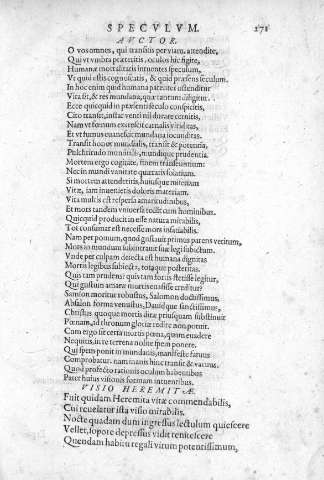 SPECVLVM. 271
AVCTOR.
O vos omnes, qui transitis per viam, attendite,
Qui vt vmbra præteritis, oculos hic figite,
Humanæ mortalitatis intuentes speculum,
Vt quid estis cognoscatis, & quid præsens seculum.
In hoc enim quid humana patrates ostenditur
Vita sit, & res mundana, quàm
Ecce quicquid in præsenti seculo conspicitis,
Cito transit, instar venti nil durare cernitis,
Nam vt fœnum exarescit carnalis viriditas,
Et vt fumus euanescit mundana iocunditas.
Transit honor mundialis, transit & potentia,
Pulchritudo mundialis, mundique prudentia.
Mortem ergo cogitate, finem transeuntium:
Nec in mundi vanitate quæratis solatium.
Si mortem attenderitis, huiusque miseriam
Vitæ, iam inuenietis doloris materiam.
Vita multis est respersa amaritudinibus,
Et mors tandem vniuersis tollit cum hominibus.
Quicquid producit in esse natura mirabilis,
Tot consumat est necesse mors insatiabilis.
Nam per pomum, quod gustauit primus parens vetitum,
Mors in mundum subintrauit suæ legi subiectum.
Vnde per culpam deiecta est humana dignitas
Mortis legibus subiecta, totaque posteritas.
Quis tam prudens? quis tam fortis stetisse legitur,
Qui gustum amaræ mortis euasisse creditur?
Samson moritur robustus, Salomon doctissimus,
Absalon forma venustus, Dauidque sanctissimus,
Christus quoque mortis diræ priusquam substinuit
Pœnam, ad thronum gloriæ redire non potuit.
Cum ergo sit certa mortis pœna, quam euadere
Nequitis, in re terrena nolite spem ponere.
Qui spem ponit in mundanis, manifestè fatuus
Comprobatur. nam inanis hinc transit & vacuus.
Quod profectò rationis oculum habentibus
Patet huius visionis formam intuentibus.
VISIO HEREMITÆ.
Fuit quidam Heremita vitæ commendabilis,
Cui reuelatur ista visio mirabilis.
Nocte quadam dum ingressus lectulum quiescere
Vellet, sopore depressus vidit renitescere
Quendam habitu regali virum potentissimum,